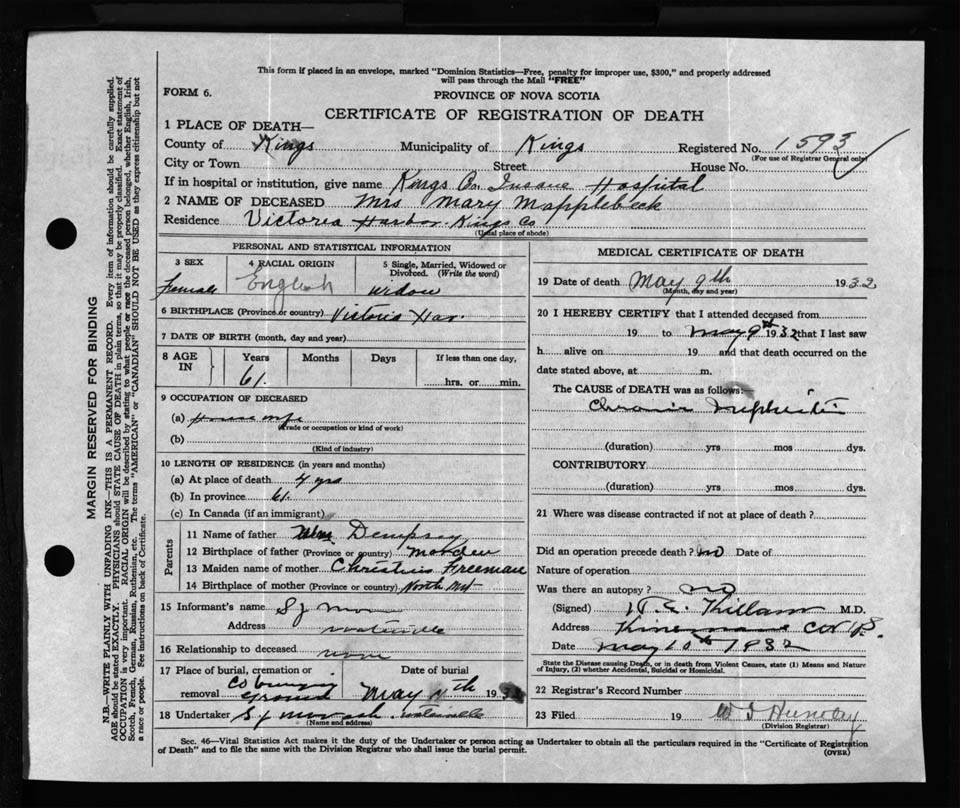 This form if placed in an envelope, marked "Dominion Statistics—Free, penalty for improper use, $300," and properly addressed
will pass through the Mail "FREE"
FORM 6.
PROVINCE OF NOVA SCOTIA
CERTIFICATE OF REGISTRATION OF DEATH
1 PLACE OF DEATH—
County of Kings Municipality of Kings Registered No. 1593
(For use of Registrar General only)
City or Town Street House No.
If in hospital or institution, give name Kings Co. Insane Hospital
2 NAME OF DECEASED Mrs Mary Mapplebeck
Residence Victoria Harbor Kings Co
(Usual place of abode)
PERSONAL AND STATISTICAL INFORMATION
3 SEX 4 RACIAL ORIGIN 5 Single, Married, Widowed or Divorced. (Write the word)
Female English widow
6 BIRTHPLACE (Province or country) Victoria Har.
7 DATE OF BIRTH (month, day and year)
8 AGE IN Years Months Days If less than one day,
61. hrs. or min.
9 OCCUPATION OF DECEASED
(a) House wife
(Trade or occupation or kind of work)
(b)
(Kind of industry)
10 LENGTH OF RESIDENCE (in years and months)
(a) At place of death 4 yrs
(b) In province 61.
(c) In Canada (if an immigrant)
Parents
11 Name of father Dempsey
12 Birthplace of father (Province or country) Morden
13 Maiden name of mother Freeman
14 Birthplace of mother (Province or country) North Mt
15 Informant's name S J
Address Waterville
16 Relationship to deceased none
17 Place of burial, cremation or removal Date of burial
Co burying ground May 11th 1932
18 Undertaker S J Waterville
(Name and address)
MEDICAL CERTIFICATE OF DEATH
19 Date of death May 9th 1932
(Month, day and year)
20 I HEREBY CERTIFY that I attended deceased from
19 to May 9th 1932 that I last saw
h alive on 19 and that death occurred on the
date stated above, at m.
The CAUSE of DEATH was as follows:
Chronic Nephritis
(duration) yrs mos dys.
CONTRIBUTORY
(duration) yrs mos dys.
21 Where was disease contracted if not at place of death?
Did an operation precede death? no Date of
Nature of operation
Was there an autopsy? no
(Signed) Killam M.D.
Address
Date May 10th 1932
State the Disease causing Death, or in death from Violent Causes, state (1) Means and Nature
of Injury, (2) whether Accidental, Suicidal or Homicidal.
22 Registrar's Record Number
23 Filed 19
(Division Registrar)
Sec. 46—Vital Statistics Act makes it the duty of the Undertaker or person acting as Undertaker to obtain all the particulars required in the "Certificate of Registration
of Death" and to file the same with the Division Registrar who shall issue the burial permit.
(OVER)
MARGIN RESERVED FOR BINDING
N.B.—WRITE PLAINLY WITH UNFADING INK—THIS IS A PERMANENT RECORD. Every item of information should be carefully supplied.
AGE should be stated EXACTLY. PHYSICIANS should STATE CAUSE OF DEATH in plain terms, so that it may be properly classified. Exact statement of
OCCUPATION is very important. RACIAL ORIGIN will be described by stating to what people or race the deceased person belonged, whether English, Irish,
Scotch, French, German, Russian, Ruthenian, etc. The terms "AMERICAN" or "CANADIAN" SHOULD NOT BE USED as they express citizenship but not
a race or people. See instructions on back of Certificate.